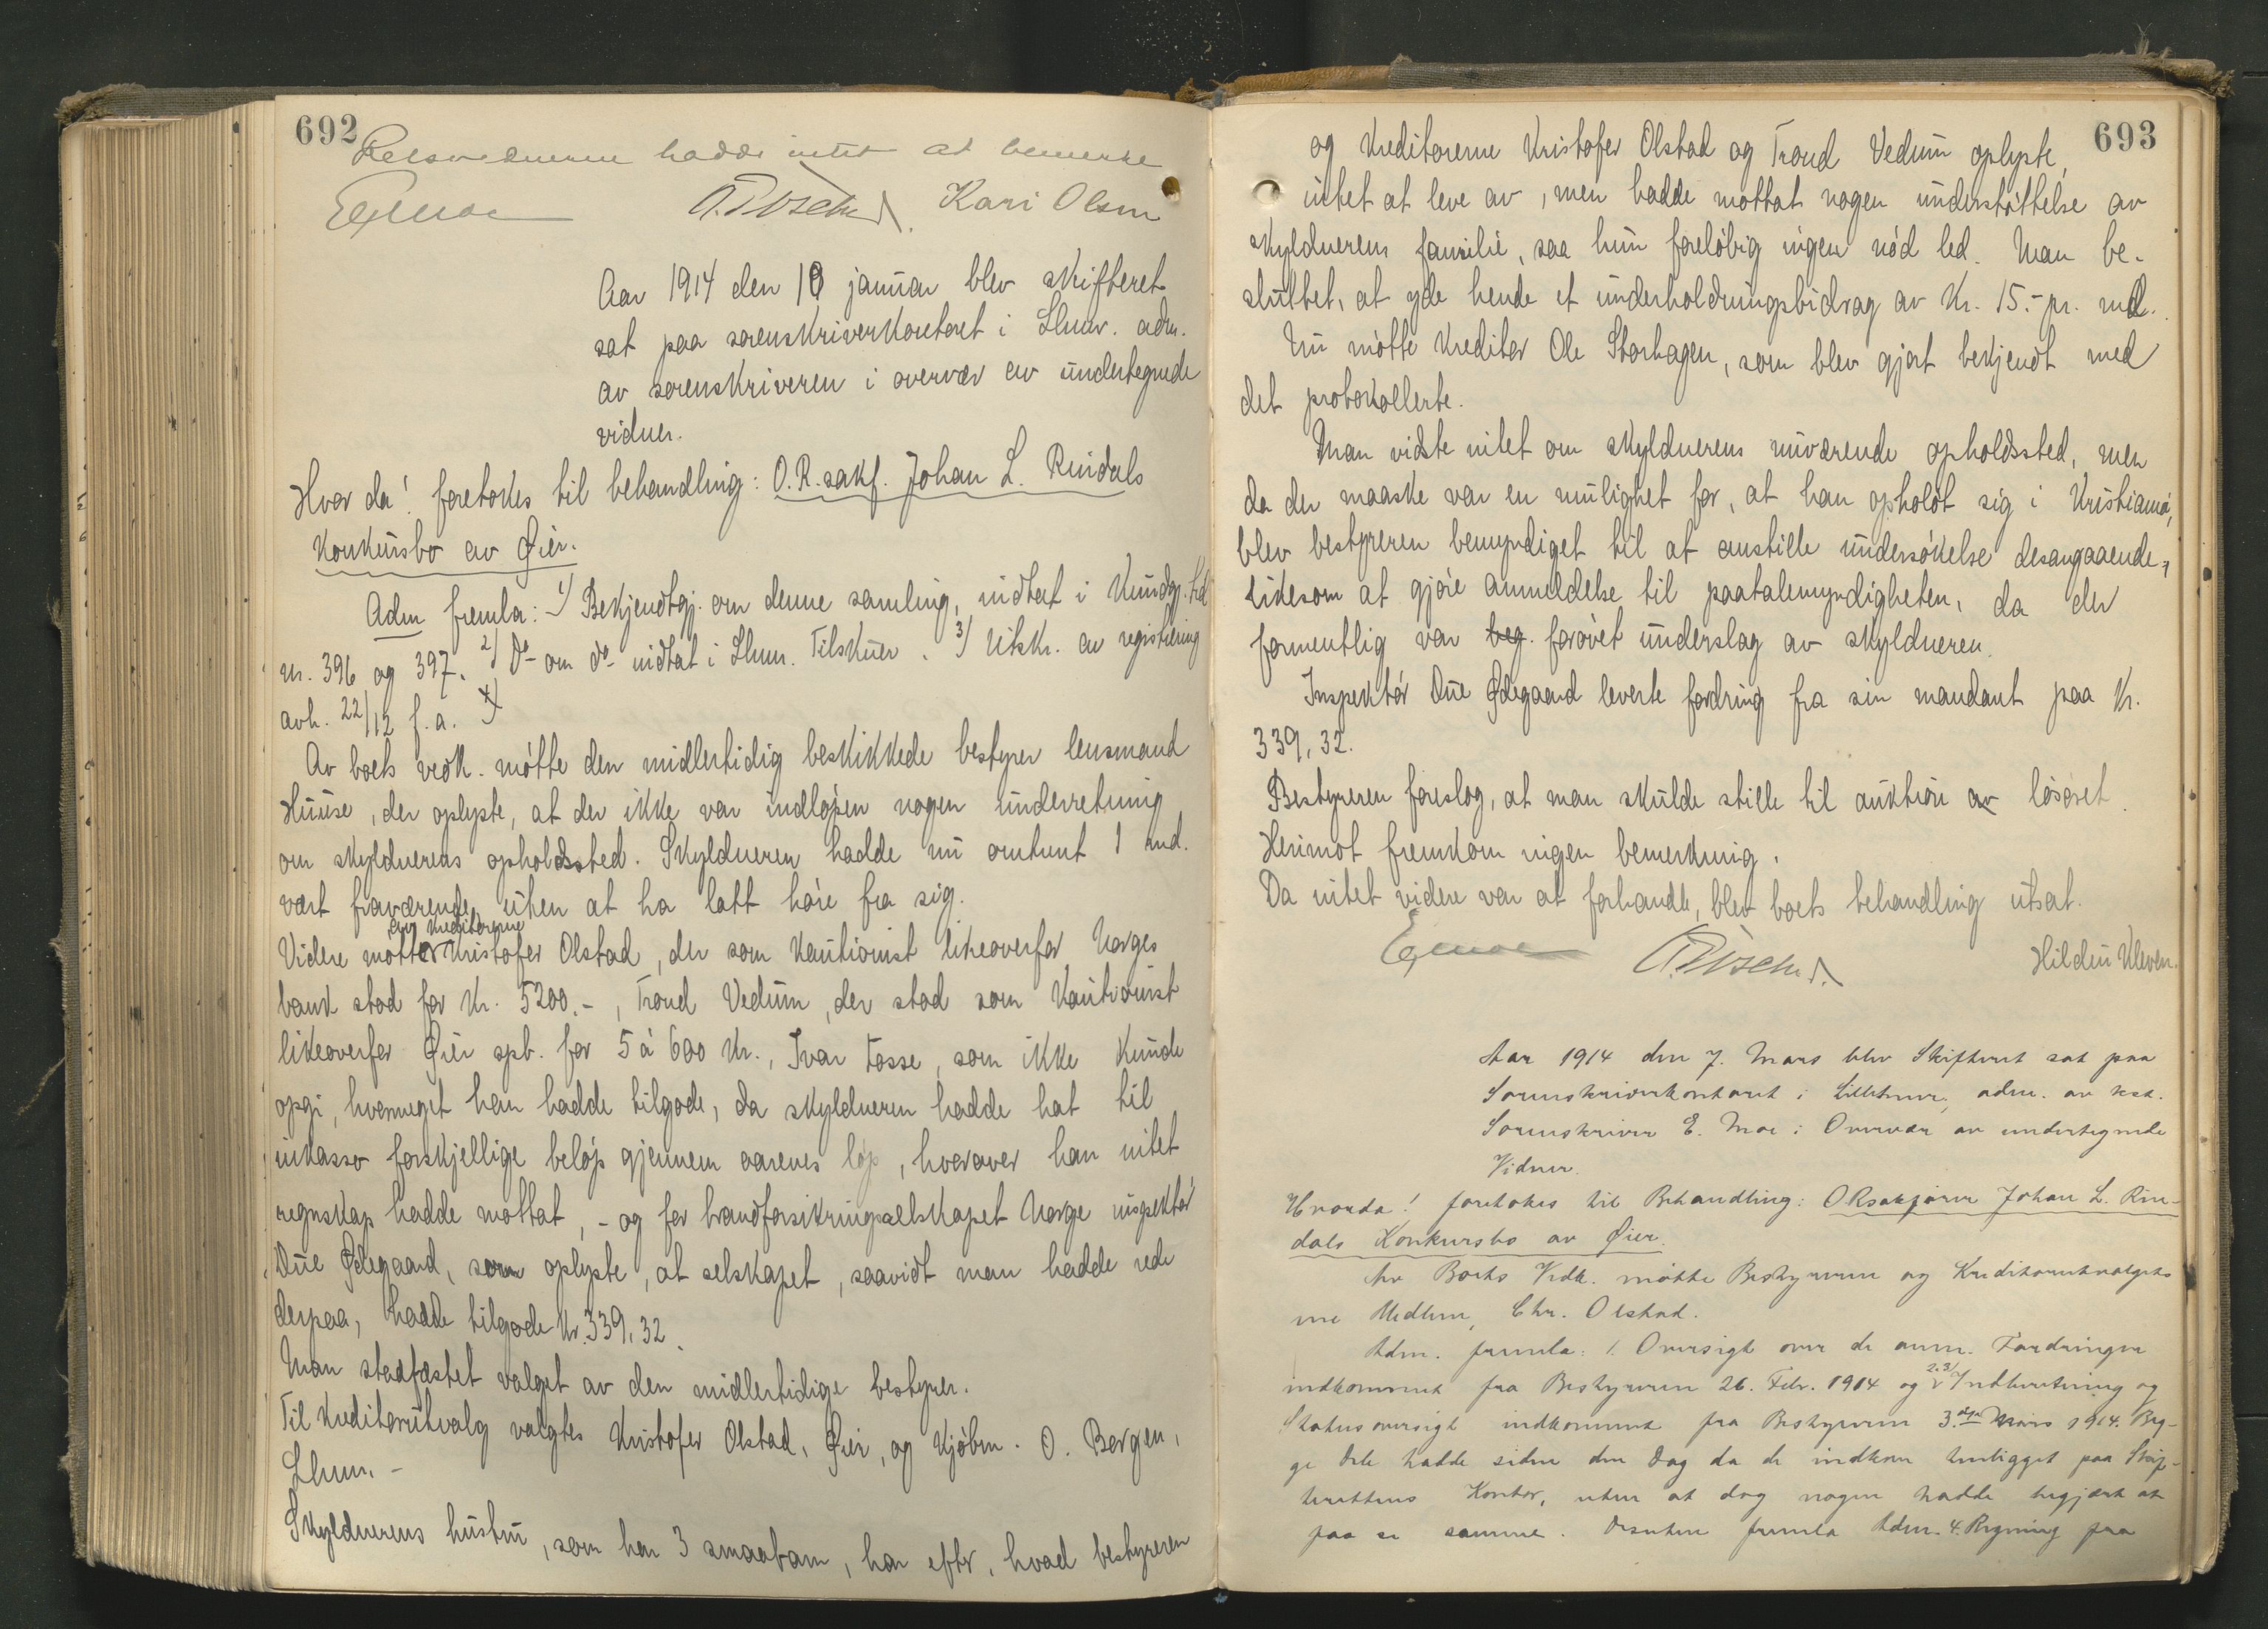 692
Retsvidnerne hadde intet at bemerke
EMoe Kari Olsen
Aar 1914 den 10 januar blev skifteret
sat paa sorenskriverkontoret i Lhmr. adm.
av sorenskriveren i overvær av undertegnede
vidner.
Hvorda! foretokes til behandling: O.R.sakf. Johan L. Rindals
konkursbo av Øier.
Adm fremla: 1) Bekjendtgj. om denne samling, indtat i Kundgj.tid
nr. 396 og 397. 2) Do om do indtat i Lhmr. Tilskuer. 3) Utskr. av registrering
avh. 22/12 f.a. 4)
Av boets vedk. møtte den midlertidig beskikkede bestyrer lensmand
Huuse, der oplyste, at der ikke var indløpen nogen underretning
om skyldnerens opholdssted. Skyldneren hadde nu omtrent 1 md.
vært fraværende uten at ha latt høre fra sig.
av kreditorerne
Videre møtte Kristofer Olstad, der som kautionist likeoverfor Norges
bank stod for Kr. 5200.-, Trond Vedum, der stod som kautionist
likeoverfor Øier spb. for 5 à 600 kr., Ivar Fosse, som ikke kunde
opgi, hvormeget han hadde tilgode, da skyldneren hadde hat til
inkasso forskjellige beløp gjennem aarenes løp, hvorover han intet
regnskap hadde mottat, - og for brandforsikringsselskapet Norge inspektør
Due Ødegaard, som oplyste, at selskapet, saavidt man hadde rede
derpaa, hadde tilgode kr. 339,32.
Man stadfæstet valget av den midlertidige bestyrer.
Til kreditorutvalg valgtes Kristofer Olstad, Øier, og kjøbm. O. Bergen,
Lhmr. -
Skyldnerens hustru, som har 3 smaabarn, har efter, hvad bestyreren
693
og kreditorerne Kristofer Olstad og Trond Vedum oplyste,
intet at leve av, men hadde mottat nogen understøttelse av
skyldnerens familie, saa hun foreløbig ingen nød led. Man be-
sluttet, at yde hende et underholdningsbidrag av Kr. 15.- pr. md.
Nu møtte kreditor Ole Storhagen, som blev gjort bekjendt med
det protokollerte.
Man vidste intet om skyldnerens nuværende opholdssted, men
da der maaske var en mulighet for, at han opholdt sig i Kristiania,
blev bestyreren bemyndiget til at anstille undersøkelse desangaaende,
likesom at gjøre anmeldelse til paatalemyndigheten, da der
formentlig var beg. forøvet underslag av skyldneren.
Inspektør Due Ødegaard leverte fordring fra sin mandant paa Kr.
339,32.
Bestyreren foreslog, at man skulde stille til auktion av løsøret.
Herimot fremkom ingen bemerkning.
Da intet videre var at forhandle, blev boets behandling utsat.
EMoe Hildur Kleven.
Aar 1914 den 7. Mars blev Skifteret sat paa
Sorenskriverkontoret i Lillehmr, adm. av kst.
Sorenskriver E. Moe i Overvær av undertegnede
Vidner.
Hvorda! foretokes til Behandling: ORsakfører Johan L. Rin-
dals Konkursbo av Øier.
Av Boets Vedk. møtte Bestyreren og Kreditorutvalgets
ene Medlem, Chr. Olstad.
Adm. fremla: 1. Oversigt over de anm. Fordringer
indkommet fra Bestyreren 26. Febr. 1914 og 2.3/ Indberetning og
Statusoversigt indkommet fra Bestyreren 3. dse Mars 1914. Beg-
ge Dele hadde siden den Dag da de indkom henligget paa Skif-
terettens Kontor, uten at dog nogen hadde begjært at
faa se samme. Desuten fremla Adm. 4. Regning fra